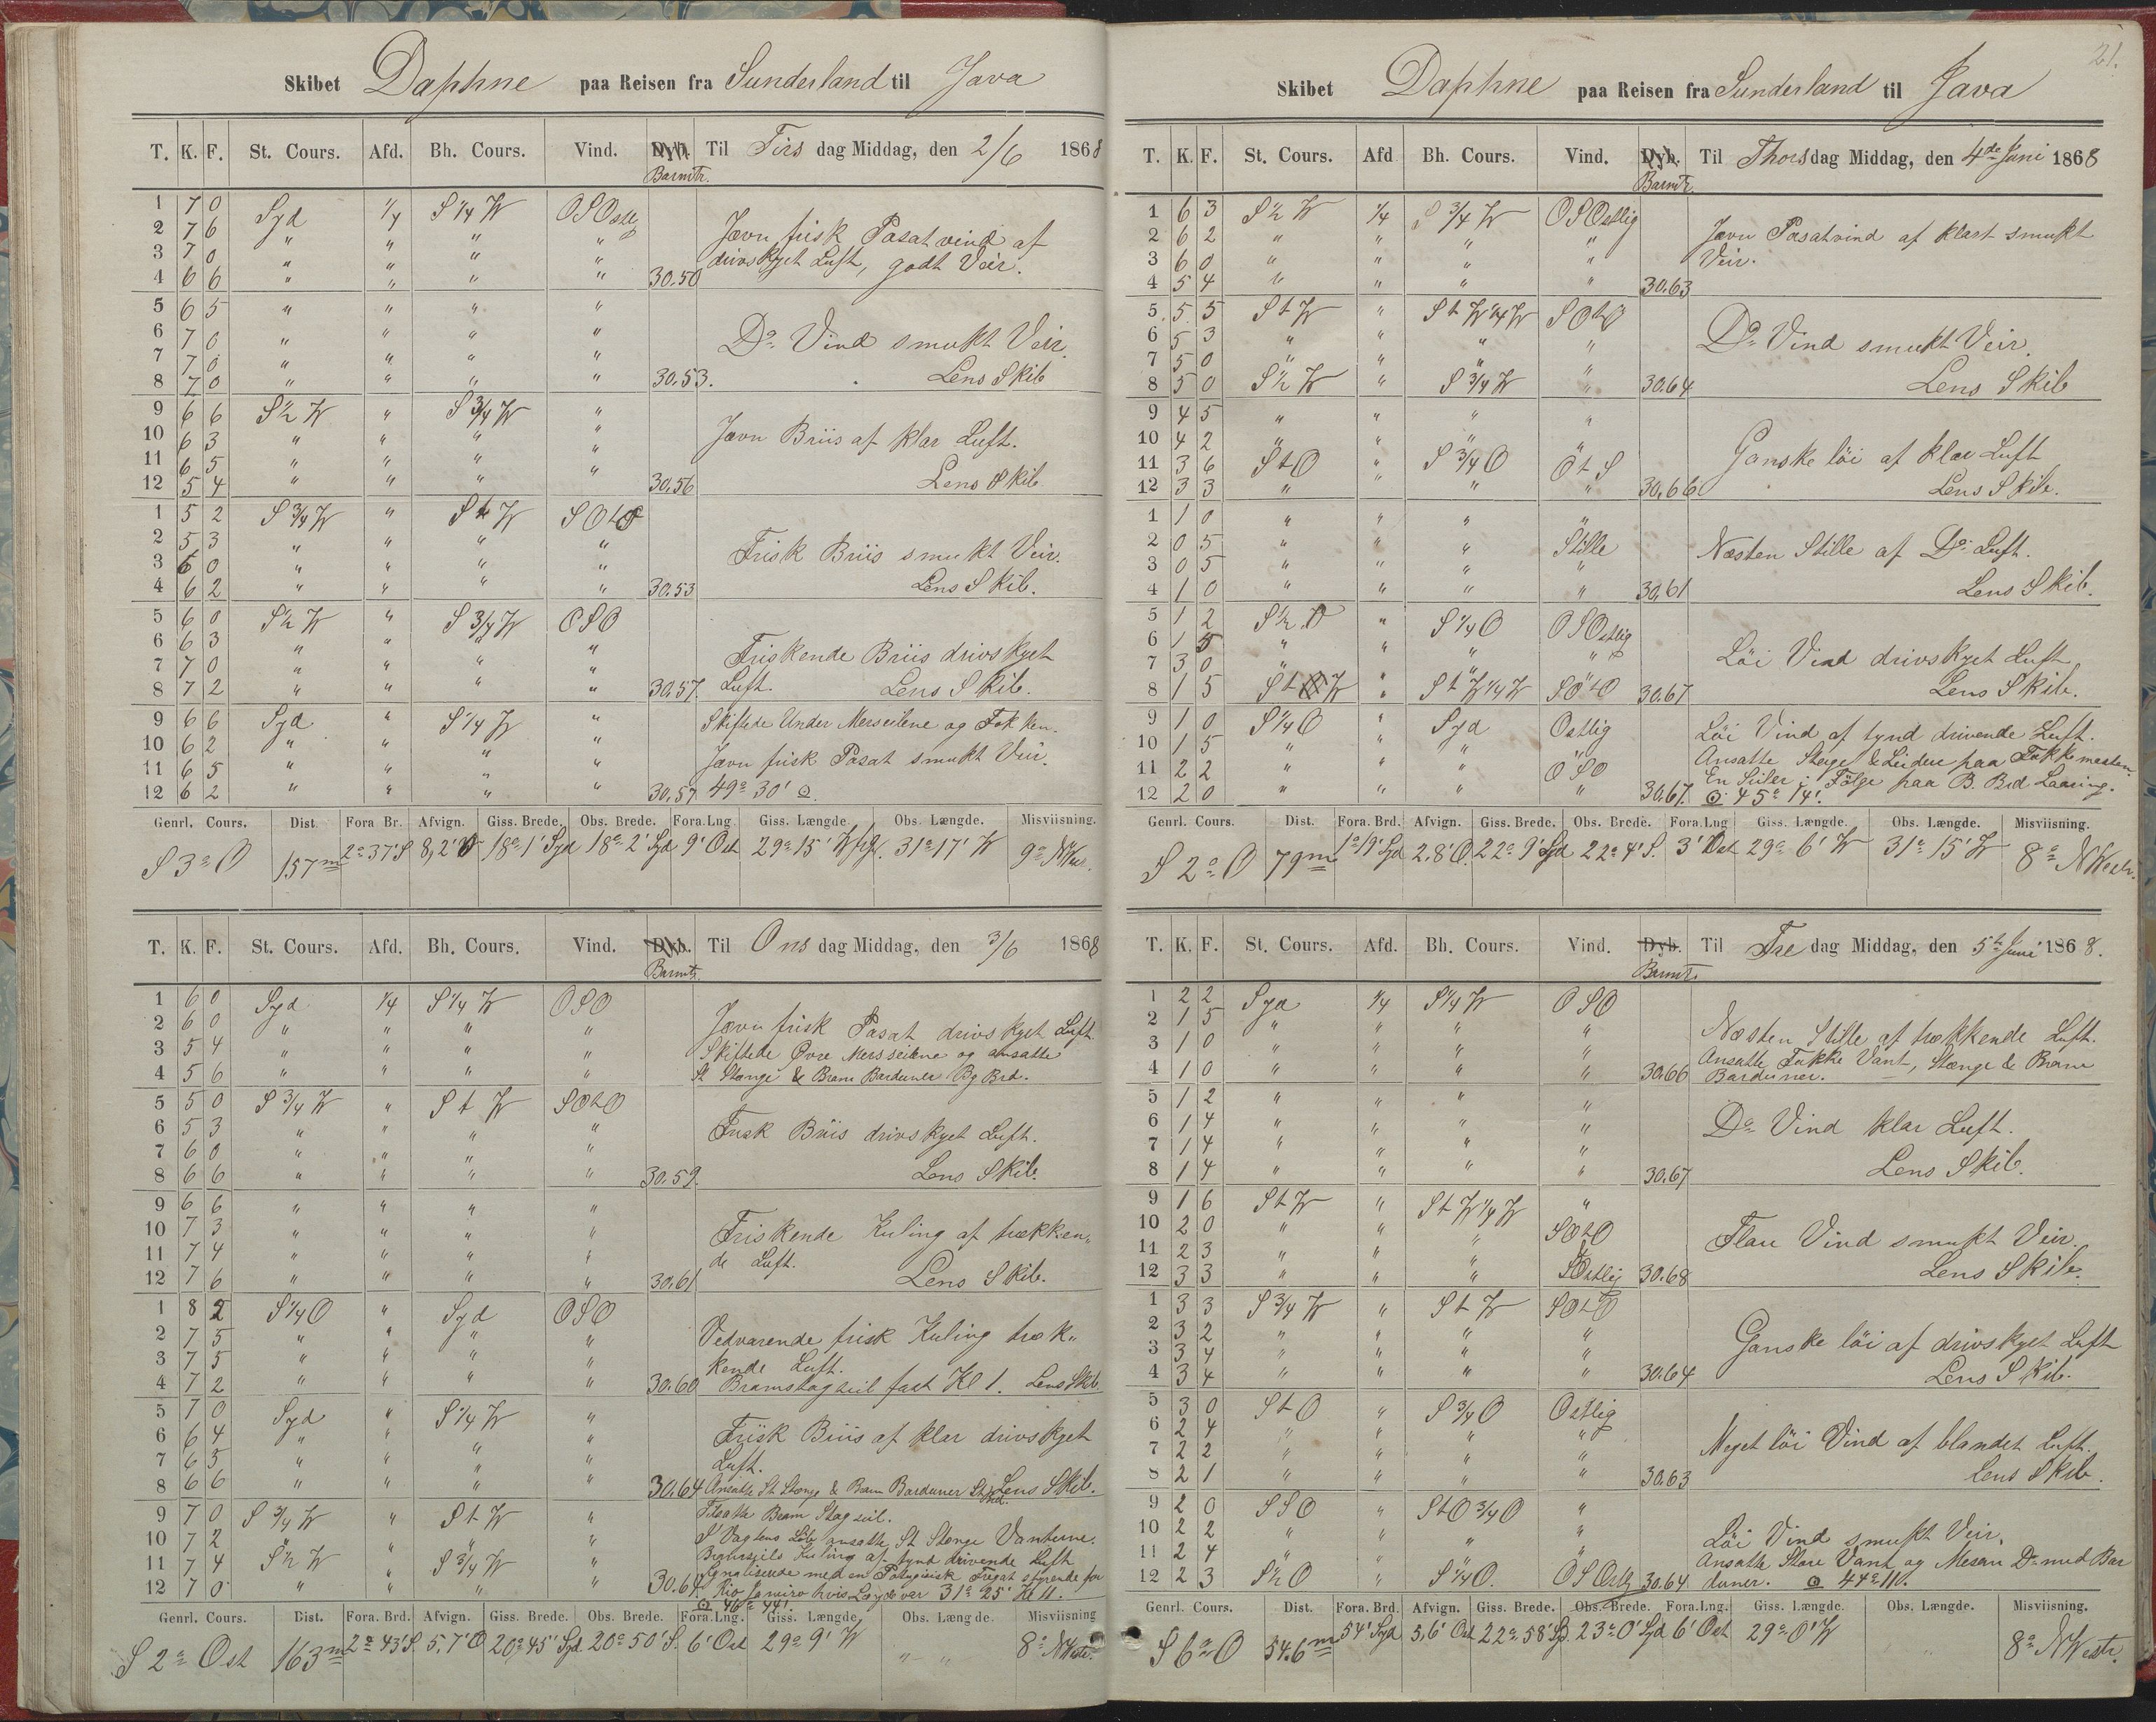 Skibet Daphne paa Reisen fra Sunderland til Java
T. K. F. St. Cours. Afd. Bh. Cours. Vind. Dyb. Til Tirs dag Middag, den 2/6 1868
Barmtr.
1 7 0 Syd 1/4 S 1/4 W OSOstlig
2 7 6 " " " " Jævn frisk Pasatvind af
3 7 0 " " " " drivskyet Luft, godt Veir.
4 6 6 " " " " 30.50
5 6 5 " " " "
6 7 0 " " " " Do Vind smukt Veir.
7 7 0 " " " "
8 7 0 " " " " 30.53. Lens Skib
9 6 6 S 1/2 W " S 3/4 W "
10 6 3 " " " " Jævn Briis af klar Luft.
11 6 5 " " " "
12 5 4 " " " " 30.56 Lens Skib
1 5 2 S 3/4 W " S t W SOtO
2 5 3 " " " " Frisk Briis smukt Veir.
3 6 0 " " " "
4 6 2 " " " " 30.53 Lens Skib.
5 6 0 S 1/2 W " S 3/4 W OSO
6 6 3 " " " " Friskende Briis drivskyet
7 7 0 " " " "
8 7 2 " " " " 30.57. Luft. Lens Skib.
9 6 6 Syd " S 1/4 W " Skiftede Under Merseilene og Fokken.
10 6 2 " " " "
11 6 5 " " " " Jævn frisk Pasat smukt Veir.
12 6 2 " " " " 30.57 49° 30' ☉
Genrl. Cours. Dist. Fora Br. Afvign. Giss. Brede. Obs. Brede. Fora.Lng. Giss. Længde. Obs. Længde. Misviisning.
S 3° O 157 m 2° 37' S 8,2' O 18° 1' Syd 18° 2' Syd 9' Ost 29° 15' W 31° 17' W 9°
T. K. F. St. Cours. Afd. Bh. Cours. Vind. Dyb. Til Ons dag Middag, den 3/6 1868
Barmtr.
1 6 0 Syd 1/4 S 1/4 W OSO
2 6 0 " " " " Jævn frisk Pasat drivskyet Luft.
3 5 4 " " " " Skiftede Øvre Mersseilene og ansatte
4 5 6 " " " " St Stænge & Bram Barduner Bg Brd.
5 5 0 S 3/4 W " S t W SOtO
6 5 3 " " " " Frisk Briis drivskyet Luft.
7 6 0 " " "
8 6 6 " " " " 30.59. Lens Skib.
9 6 6 " " " "
10 7 3 " " " " Friskende Kuling af trækken„
11 7 4 " " " " de Luft.
12 7 6 " " " " 30.61 Lens Skib.
1 8 2 S 1/4 O " Syd OSO
2 7 5 " " " " Vedvarende frisk Kuling træk„
3 7 5 " " " " kende Luft.
4 7 2 " " " " 30.60 Bramstagseil fast Kl 1. Lens Skib
5 7 0 Syd " S 1/4 W "
6 6 4 " " " " Frisk Briis af klar drivskyet
7 6 5 " " " " Luft.
8 6 6 " " " 30.64 Ansatte St Stænge & Bram Barduner St Brd. Lens Skib.
9 7 0 S 3/4 W " S t W " Tilsatte Bram Stagseil.
10 7 2 " " " " I Vagtens Løb ansatte St Stænge Vantene.
Bramseils Kuling af tynd drivende Luft
11 7 4 S 1/2 W " S 3/4 W " Signaliserede med en Potugisisk Fregat styrende for
12 7 0 " " " " 30.64. Rio Janeiro hvis Længde var 31° 25' Kl 11.
☉ 46° 44'.
Genrl. Cours. Dist. Fora. Brd. Afvign. Giss. Brede. Obs. Brede. Fora.Lng. Giss. Længde Obs. Længde. Misviisning
S 2° Ost 163 m 2° 43' S. 5,7' O 20° 45' Syd 20° 50' S. 6' Ost 29° 9' W " " 8° N Westr.
21.
Skibet Daphne paa Reisen fra Sunderland til Java
T. K. F. St. Cours. Afd Bh. Cours. Vind. Dyb. Til Thors dag Middag, den 4de Juni 1868
Barmtr.
1 6 3 S 1/2 W 1/4 S 3/4 W OSOstlig
2 6 2 " " " " Jævn Pasatvind af klart smukt
3 6 0 " " " " Veir.
4 5 4 " " " " 30.63
5 5 5 S t W " S t W 1/4 W SOtO
6 5 3 " " " " Do Vind smukt Veir.
7 5 0 " " " "
8 5 0 S 1/2 W " S 3/4 W " 30.64 Lens Skib
9 4 5 " " " "
10 4 2 " " " " Ganske löi af klar Luft
11 3 6 S t O " S 3/4 O O t S
12 3 3 " " " " 30.66 Lens Skib.
1 1 0 " " " "
2 0 5 " " " Stille Næsten Stille af Do Luft.
3 0 5 " " " "
4 1 0 " " " " 30.61 Lens Skib.
5 1 2 S 1/2 O " S 1/4 O OSOstlig
6 1 5 " " " "
7 3 0 " " Löi Vind drivskyet Luft
8 1 5 S t W " S t W 1/4 W SOtO 30.67 Lens Skib.
9 1 0 S 1/4 O " Syd Ostlig Löi Vind af tynd drivende Luft.
10 1 5 " " " " Ansatte Stage & Leidere paa Fokkemasten.
11 2 2 " " " OSO En Seiler i Følge paa B. Brd Laaring.
12 2 0 " " " " 30.67. ☉ 45° 14'.
Genrl. Cours. Dist. Fora. Brd. Afvign. Giss. Brede. Obs. Brede. Fora.Lng Giss. Længde. Obs. Længde. Misviisning.
S 2° O 79 m 1° 19' Syd 2.8' O. 22° 9' Syd 22° 4' S. 3' Ost 29° 6' W 31° 15' W 8° N Westr.
T. K. F. St. Cours. Afd. Bh. Cours. Vind. Dyb. Til Fre dag Middag, den 5te Juni 1868.
Barmtr.
1 2 2 Syd 1/4 S 1/4 W OSO
2 1 5 " " " " Næsten Stille af trækkende Luft.
3 1 0 " " " " Ansatte Fokke Vant, Stænge & Bram
4 1 0 " " " " 30.66 Barduner.
5 1 2 " " " "
6 1 4 " " " " Do Vind klar Luft.
7 1 4 " " " "
8 1 4 " " " " 30.67 Lens Skib.
9 1 6 S t W " S t W 1/4 W "
10 2 0 " " " SOtO Flau Vind smukt Veir.
11 2 3 " " "
12 3 3 " " " SOstlig 30.68 Lens Skib.
1 3 3 S 3/4 W " S t W SOtO
2 3 2 " " " " Ganske löi af drivskyet Luft
3 3 4 " " " "
4 3 4 " " " " 30.64 Lens Skib.
5 3 0 S t O " S 3/4 O Ostlig
6 2 4 " " " "
7 2 2 " " " " Meget löi Vind af blandet Luft.
8 2 1 " " " " 30.63 Lens Skib.
9 2 0 SSO " StO 3/4 O "
10 2 2 " " " " Löi Vind smukt Veir.
11 2 4 " " " " Ansatte Store Vant og Mesan Do med Bar
12 2 3 S 1/2 O " S 1/4 O. OSOstlig 30.64 duner. ☉ 44° 10'.
Genrl. Cours. Dist. Fora. Brd. Afvign. Giss. Brede. Obs. Brede. Fora.Lng. Giss. Længde. Obs. Længde. Misviisning.
S 6° O 54.6 m 54' Syd 5,6' Ost 22° 58' Sd. 23° 0' Syd 6' Ost 29° 0' W 8° N Westr.